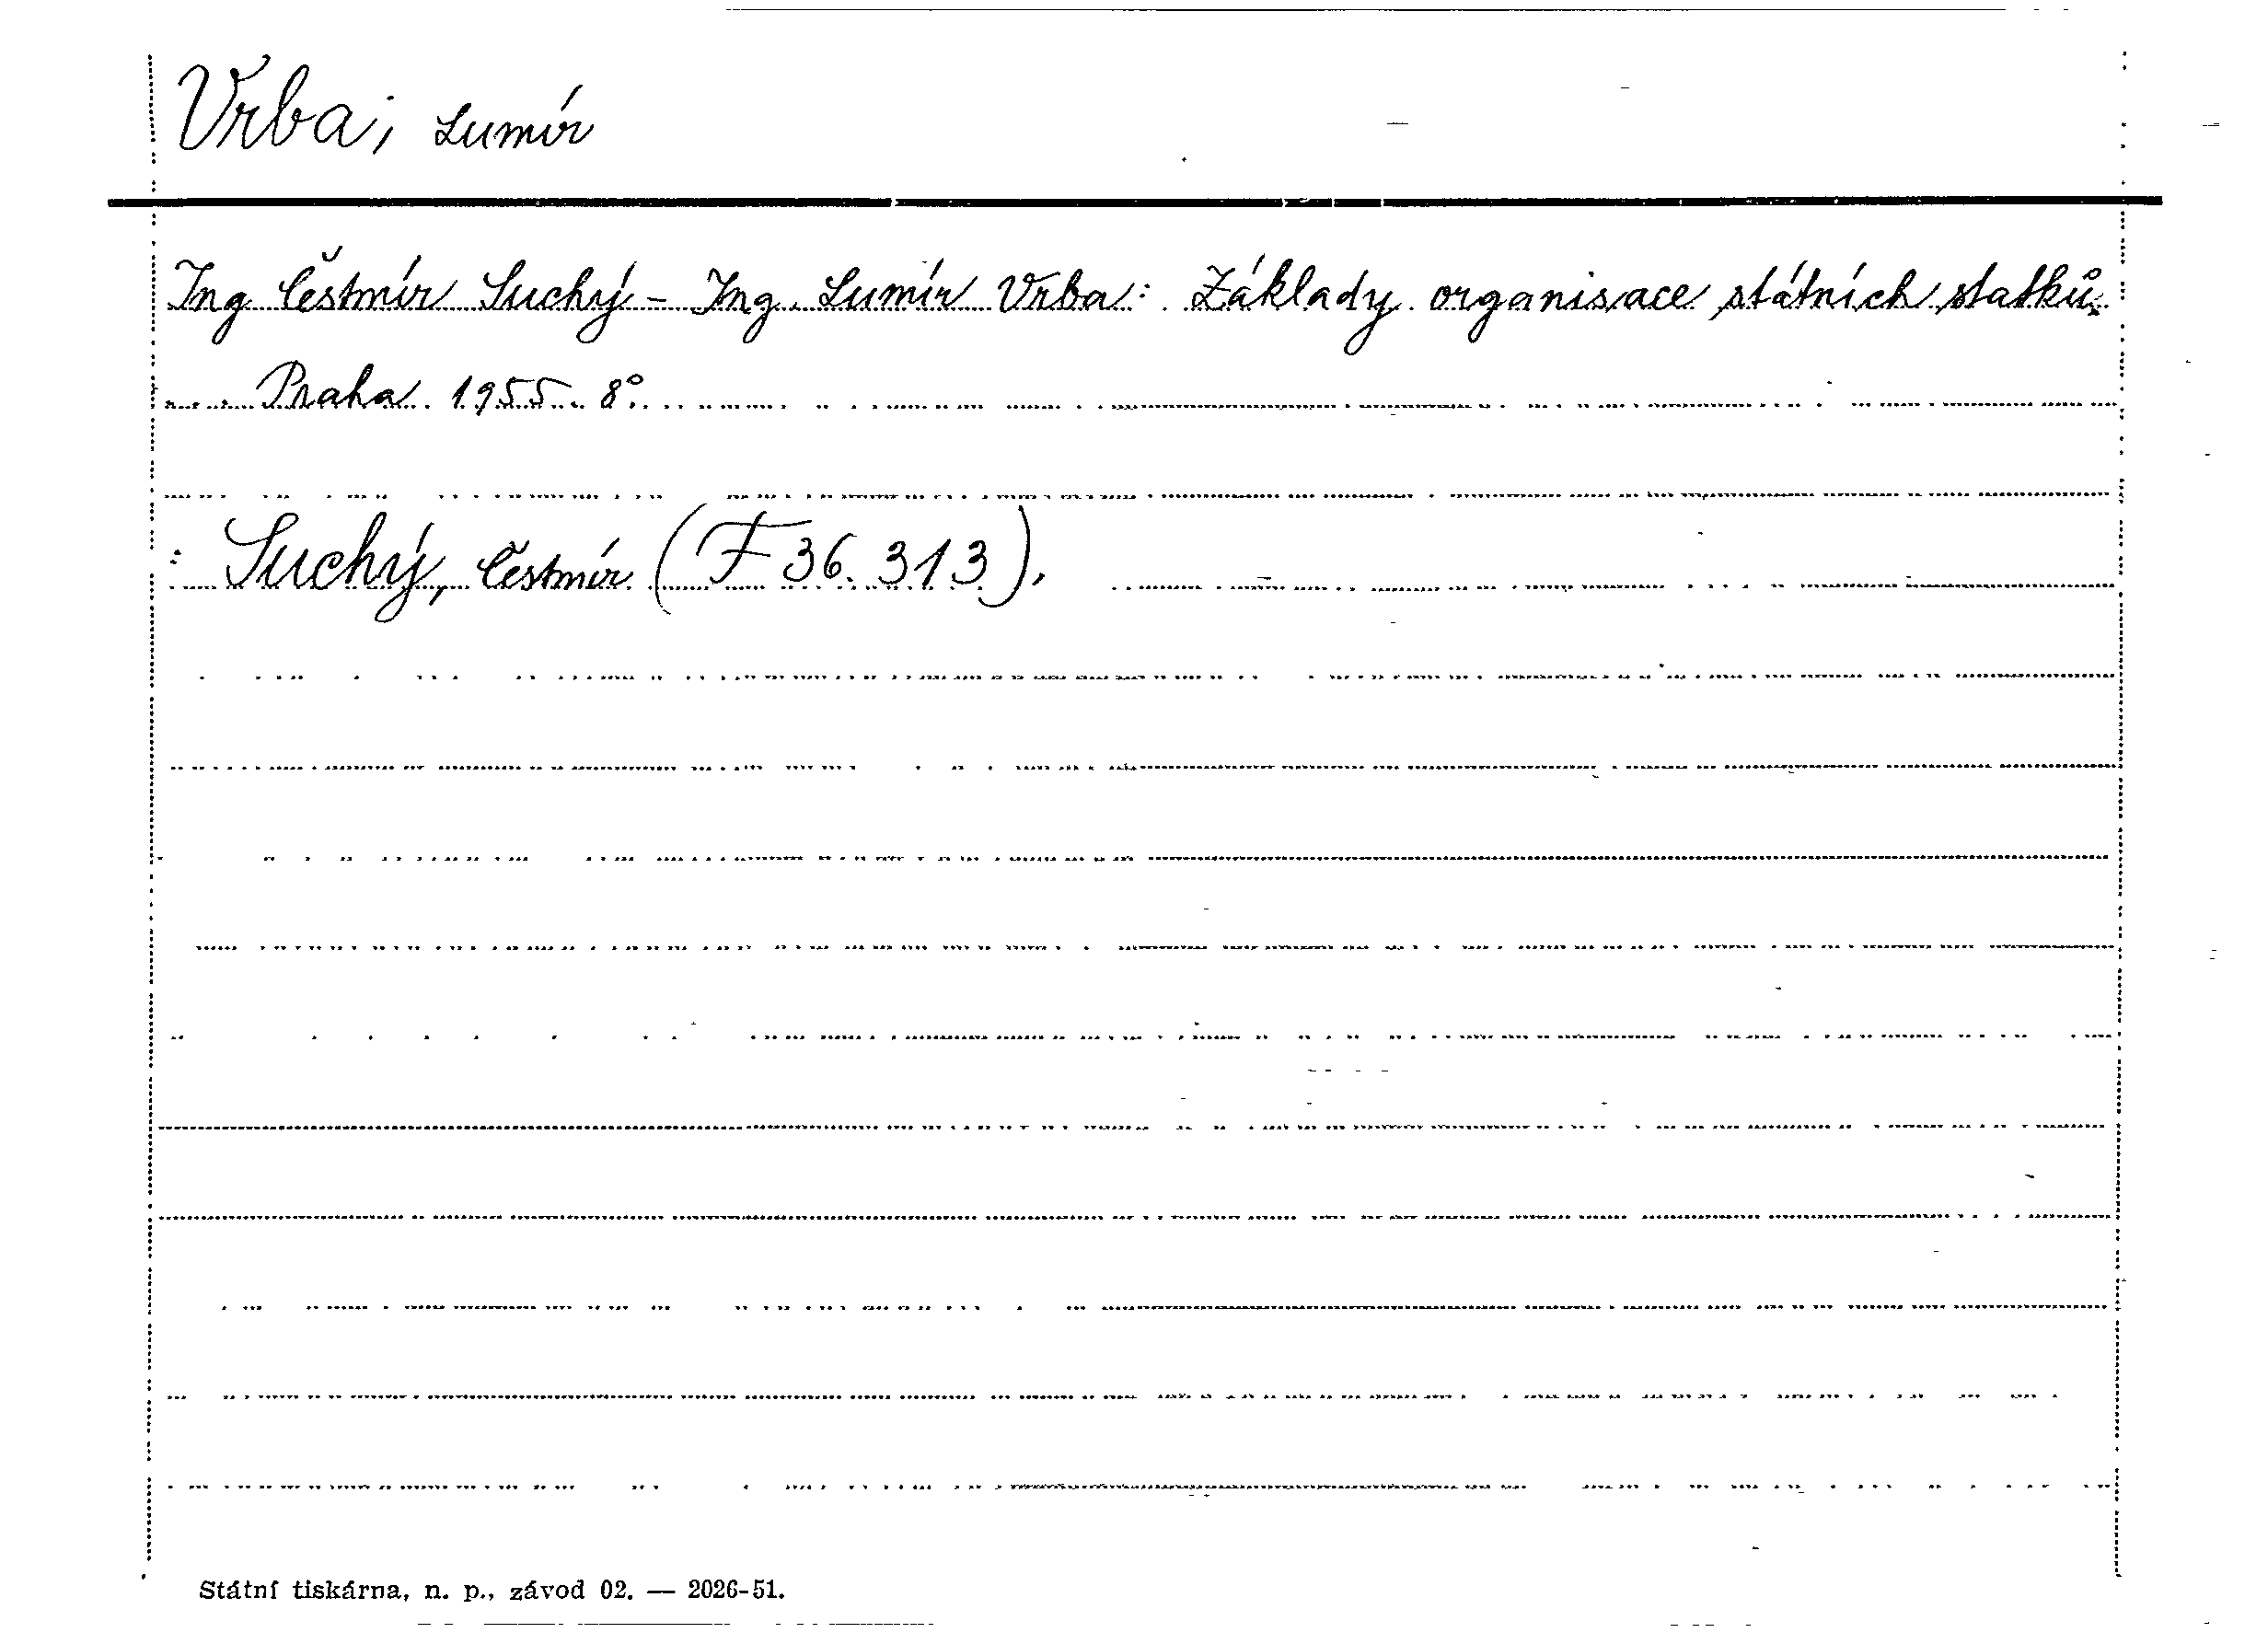 Vrba, Lumír
Ing Čestmír Suchý - Ing. Lumír Vrba: Základy organisace státních statků.
Praha 1955. 8°.
: Suchý, Čestmír (F 36.313).
Státní tiskárna, n. p., závod 02. — 2026-51.